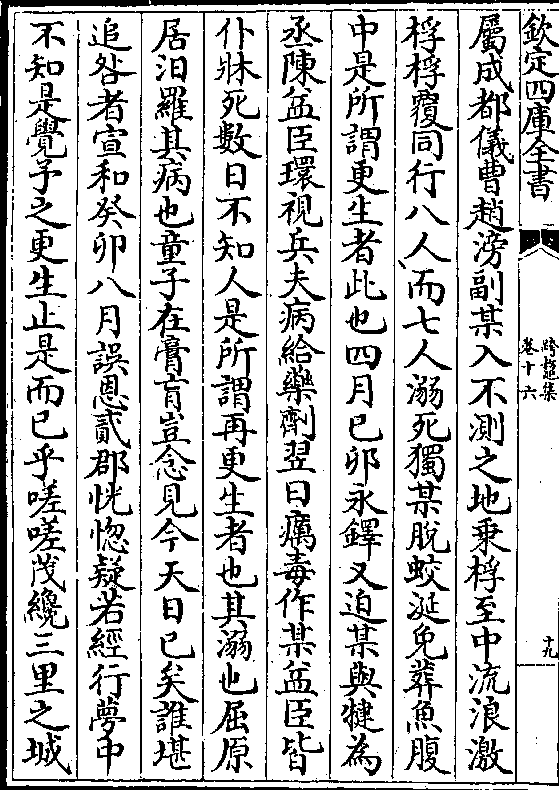 欽定四庫全書
跨鼇集
卷十六
十九
屬成都儀曹趙滂副某入不測之地乗桴至中流浪激
桴桴覆同行八人而七人溺死獨某脫蛟涎免葬魚腹
中是所謂更生者此也四月已卯永鐸又迫某與犍為
丞陳盆臣環視兵夫病給藥劑翌日癘毒作某盆臣皆
仆牀死數日不知人是所謂再更生者也其溺也屈原
居汨羅其病也童子在膏肓豈念見今天日已矣誰堪
追咎者宣和癸卯八月誤恩貳郡恍惚疑若經行夢中
不知是覺予之更生止是而已乎嗟嗟茂纔三里之城